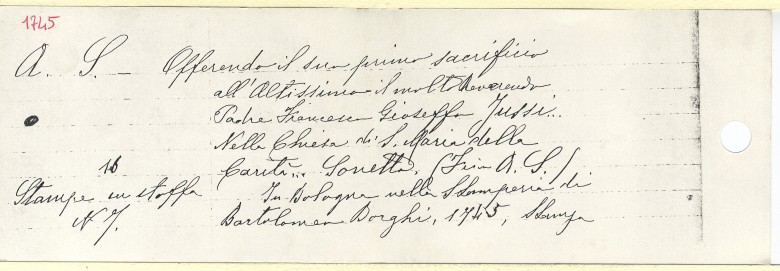 1745
A. S. - Offerendo il suo primo sacrificio
all'Altissimo il molto Reverendo
Padre Francesco Gioseffo Jussi...
Nella Chiesa di S. Maria della
Carità... Sonetto. (Fir. A. S.)
In Bologna nella Stamperia di
Bartolomeo Borghi, 1745, Stampa
16
Stampe in stoffa
N 7.